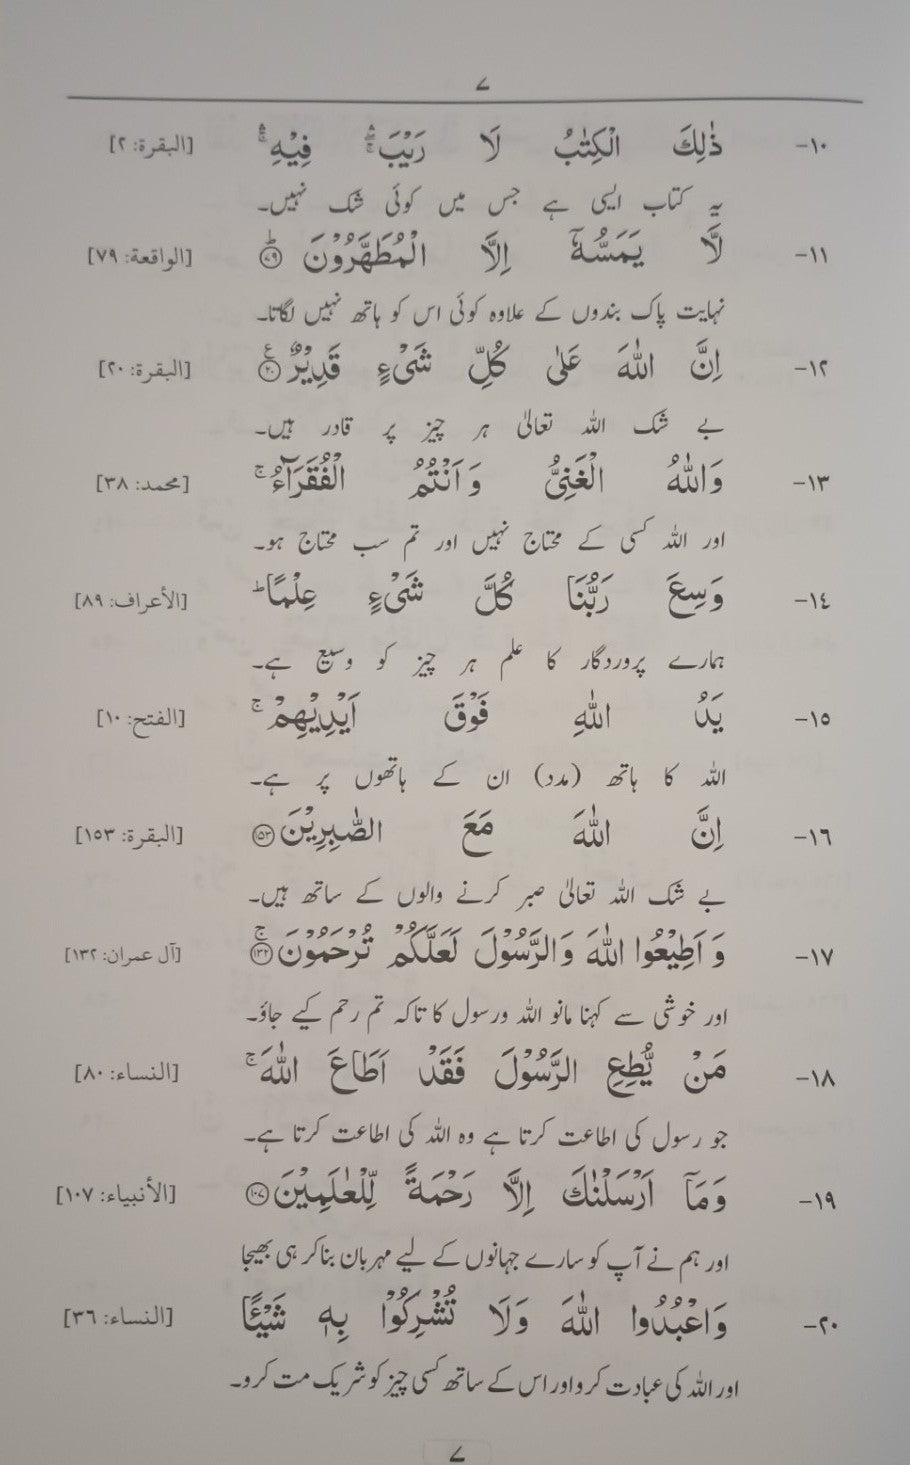 ۷
۱۰- ذٰلِكَ الْكِتٰبُ لَا رَيْبَ ۛۚ فِيْهِ ۛۚ [البقرة: ۲]
یہ کتاب ایسی ہے جس میں کوئی شک نہیں۔
۱۱- لَّا يَمَسُّهٗٓ اِلَّا الْمُطَهَّرُوْنَ ﴿۷۹﴾ؕ [الواقعة: ۷۹]
نہایت پاک بندوں کے علاوہ کوئی اس کو ہاتھ نہیں لگاتا۔
۱۲- اِنَّ اللّٰهَ عَلٰى كُلِّ شَيْءٍ قَدِيْرٌ ﴿۲۰﴾ [البقرة: ۲۰]
بے شک اللہ تعالیٰ ہر چیز پر قادر ہیں۔
۱۳- وَاللّٰهُ الْغَنِيُّ وَاَنْتُمُ الْفُقَرَآءُ ۚ [محمد: ۳۸]
اور اللہ کسی کے محتاج نہیں اور تم سب محتاج ہو۔
۱٤- وَسِعَ رَبُّنَا كُلَّ شَيْءٍ عِلْمًا ؕ [الأعراف: ۸۹]
ہمارے پروردگار کا علم ہر چیز کو وسیع ہے۔
۱٥- يَدُ اللّٰهِ فَوْقَ اَيْدِيْهِمْ ۚ [الفتح: ۱۰]
اللہ کا ہاتھ (مدد) ان کے ہاتھوں پر ہے۔
۱٦- اِنَّ اللّٰهَ مَعَ الصّٰبِرِيْنَ ﴿۱۵۳﴾ [البقرة: ۱٥۳]
بے شک اللہ تعالیٰ صبر کرنے والوں کے ساتھ ہیں۔
۱۷- وَاَطِيْعُوا اللّٰهَ وَالرَّسُوْلَ لَعَلَّكُمْ تُرْحَمُوْنَ ﴿۱۳۲﴾ۚ [آل عمران: ۱۳۲]
اور خوشی سے کہنا مانو اللہ ورسول کا تاکہ تم رحم کیے جاؤ۔
۱۸- مَنْ يُّطِعِ الرَّسُوْلَ فَقَدْ اَطَاعَ اللّٰهَ ۚ [النساء: ۸۰]
جو رسول کی اطاعت کرتا ہے وہ اللہ کی اطاعت کرتا ہے۔
۱۹- وَمَآ اَرْسَلْنٰكَ اِلَّا رَحْمَةً لِّلْعٰلَمِيْنَ ﴿۱۰۷﴾ [الأنبياء: ۱۰۷]
اور ہم نے آپ کو سارے جہانوں کے لیے مہربان بنا کر ہی بھیجا
۲۰- وَاعْبُدُوا اللّٰهَ وَلَا تُشْرِكُوْا بِهٖ شَيْـًٔا [النساء: ۳٦]
اور اللہ کی عبادت کرو اور اس کے ساتھ کسی چیز کو شریک مت کرو۔
۷